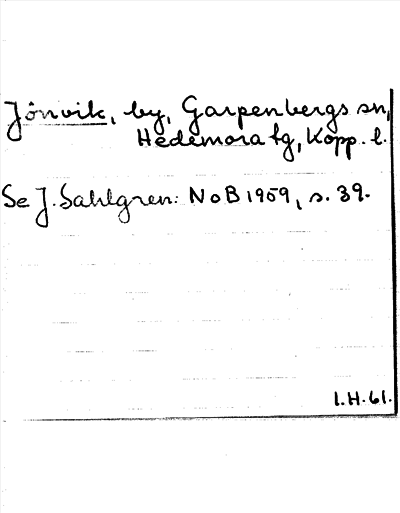 Jönvik, by, Garpenbergs sn,
Hedemora tg, Kopp. l.
Se J. Sahlgren: NoB 1959, s. 39.
I.H. 61.